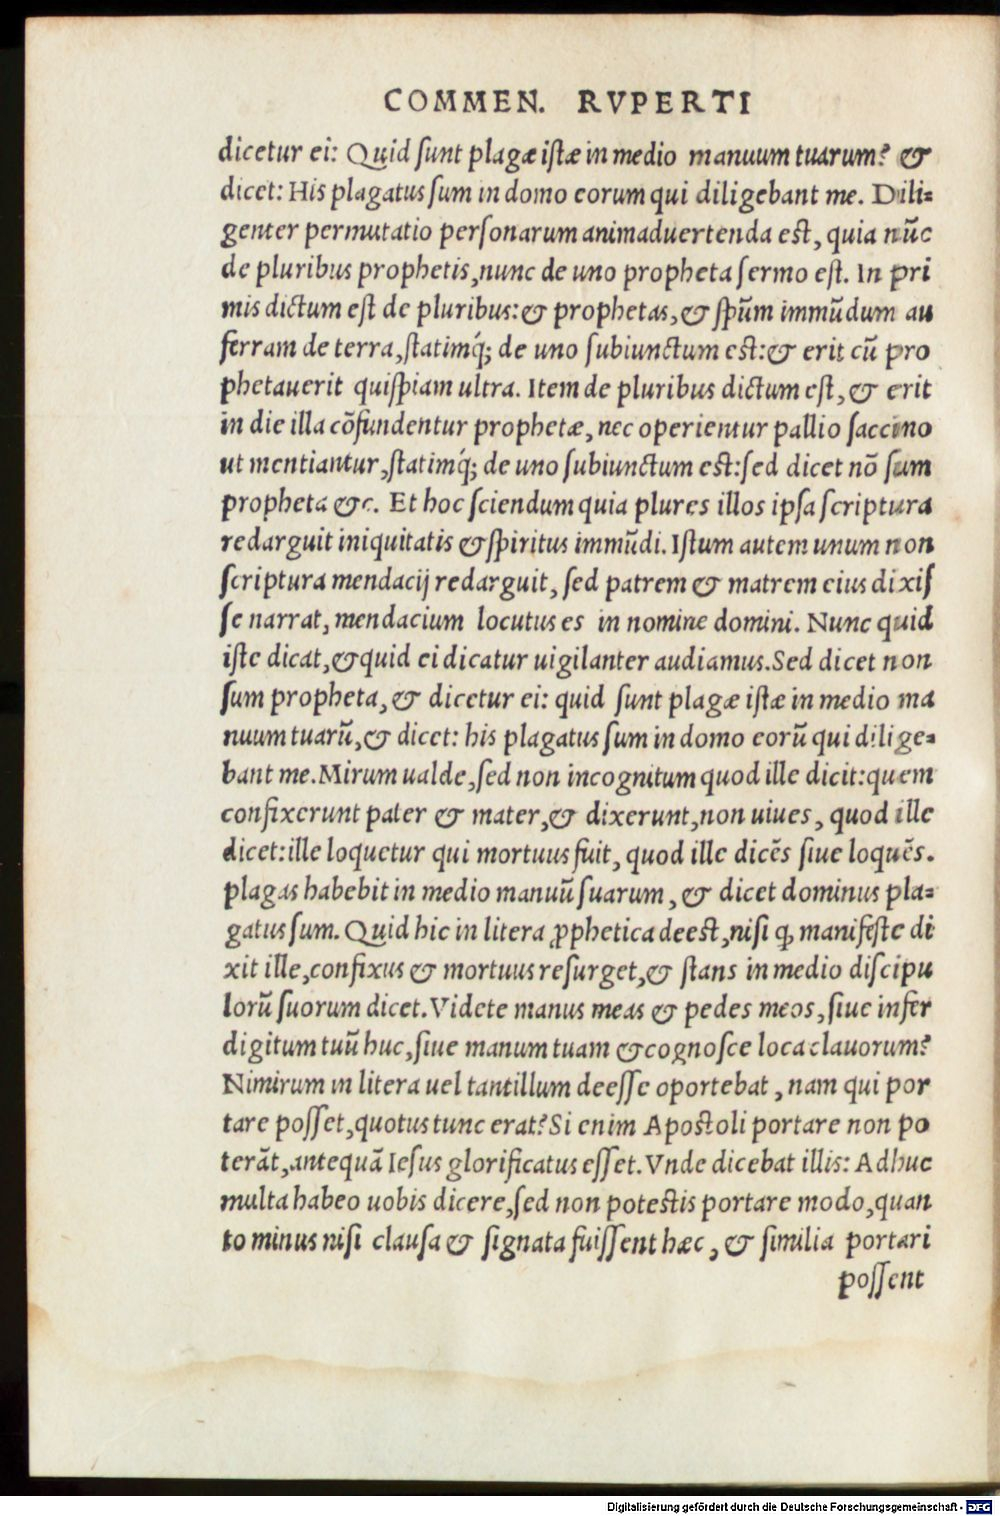 COMMEN. RVPERTI
dicetur ei: Quid ſunt plagæ iſtæ in medio manuum tuarum? &
dicet: His plagatus ſum in domo eorum qui diligebant me. Dili=
genter permutatio perſonarum animaduertenda eſt, quia nūc
de pluribus prophetis, nunc de uno propheta ſermo eſt. In pri
mis dictum eſt de pluribus: & prophetas, & ſpūm immūdum au
ferram de terra, ſtatimq́; de uno ſubiunctum eſt: & erit cū pro
phetauerit quiſpiam ultra. Item de pluribus dictum eſt, & erit
in die illa cōfundentur prophetæ, nec operientur pallio ſaccino
ut mentiantur, ſtatimq́; de uno ſubiunctum eſt: ſed dicet nō ſum
propheta &c. Et hoc ſciendum quia plures illos ipſa ſcriptura
redarguit iniquitatis & ſpiritus immūdi. Iſtum autem unum non
ſcriptura mendacij redarguit, ſed patrem & matrem eius dixiſ
ſe narrat, mendacium locutus es in nomine domini. Nunc quid
iſte dicat, & quid ei dicatur uigilanter audiamus. Sed dicet non
ſum propheta, & dicetur ei: quid ſunt plagæ iſtæ in medio ma
nuum tuarū, & dicet: his plagatus ſum in domo eorū qui dilige=
bant me. Mirum ualde, ſed non incognitum quod ille dicit: quem
confixerunt pater & mater, & dixerunt, non uiues, quod ille
dicet: ille loquetur qui mortuus fuit, quod ille dicēs ſiue loquēs.
plagas habebit in medio manuū ſuarum, & dicet dominus pla=
gatus ſum. Quid hic in litera ꝓphetica deeſt, niſi ꝙ manifeſte di
xit ille, confixus & mortuus reſurget, & ſtans in medio diſcipu
lorū ſuorum dicet. Videte manus meas & pedes meos, ſiue infer
digitum tuū huc, ſiue manum tuam & cognoſce loca clauorum?
Nimirum in litera uel tantillum deeſſe oportebat, nam qui por
tare poſſet, quotus tunc erat? Si enim Apoſtoli portare non po
terāt, antequā Ieſus glorificatus eſſet. Vnde dicebat illis: Adhuc
multa habeo uobis dicere, ſed non poteſtis portare modo, quan
to minus niſi clauſa & ſignata fuiſſent hæc, & ſimilia portari
poſſent
Digitalisierung gefördert durch die Deutsche Forschungsgemeinschaft - DFG